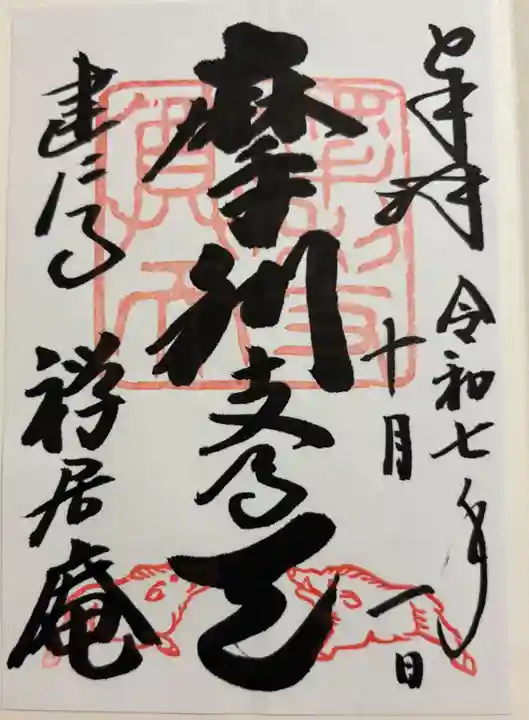 奉拝
令和七年
十月一日
摩利支尊天
建仁寺 禅居庵